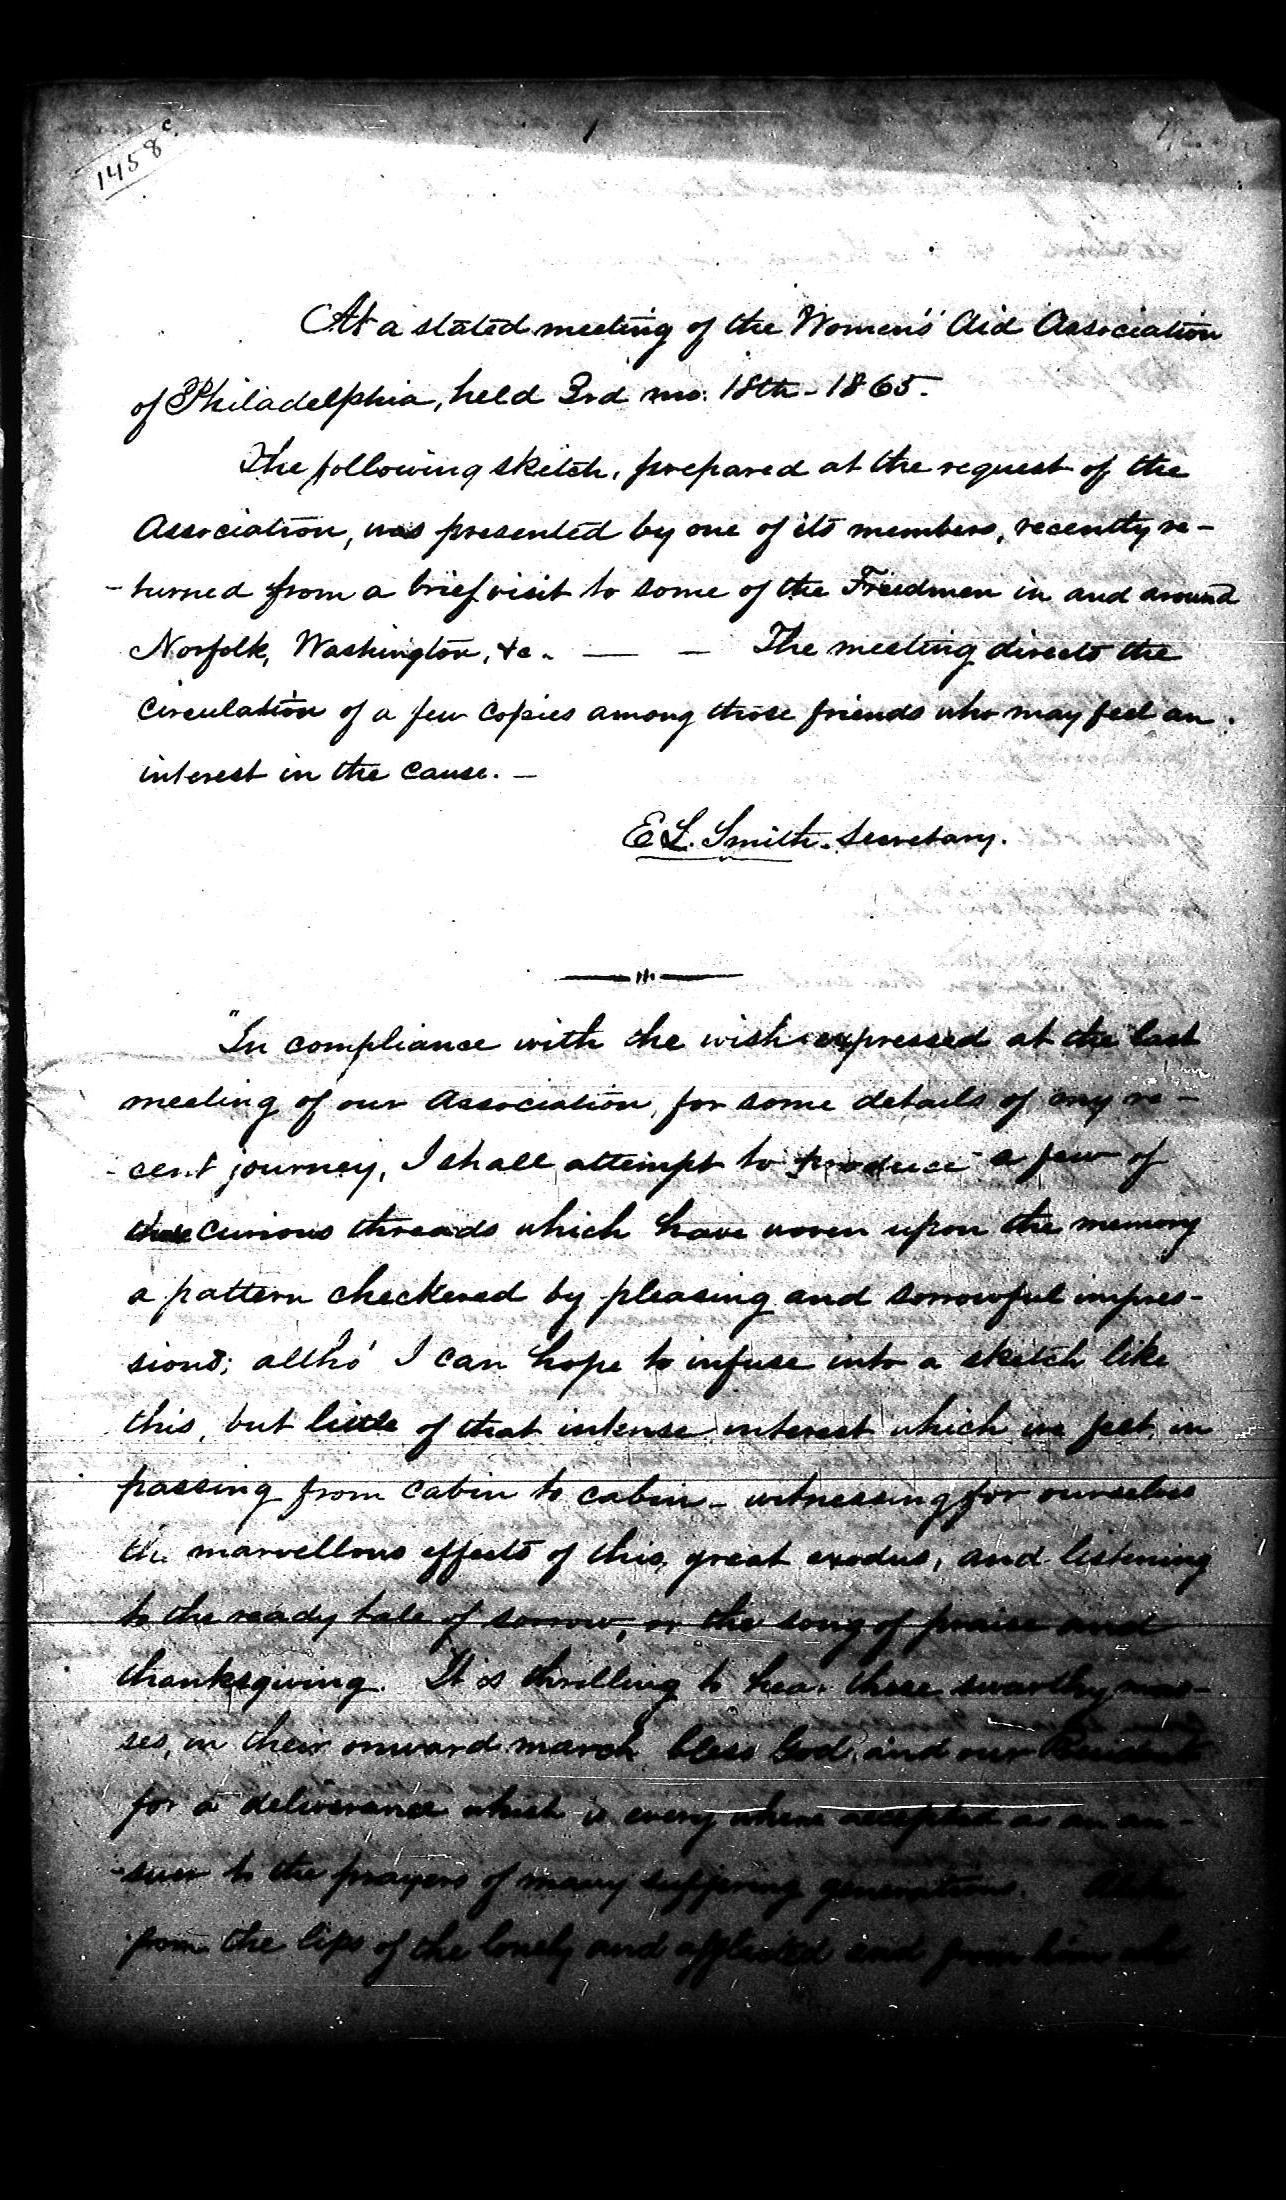 1458 c.
1
At a stated meeting of the Women's Aid Association
of Philadelphia, held 3rd mo. 18th - 1865.
The following sketch, prepared at the request of the
Association, was presented by one of its members, recently re-
-turned from a brief visit to some of the Freedmen in and around
Norfolk, Washington, &c. — – The meeting directs the
circulation of a few copies among those friends who may feel an
interest in the cause. –
E L. Smith. Secretary.
"In compliance with the wish expressed at the last
meeting of our Association, for some details of my re-
-cent journey, I shall attempt to produce a few of
those curious threads which have woven upon the memory
a pattern checkered by pleasing and sorrowful impres-
sions; altho' I can hope to infuse into a sketch like
this, but little of that intense interest which we felt in
passing from cabin to cabin – witnessing for ourselves
the marvellous effects of this great exodus, and listening
to the ready tale of sorrow, or the song of praise and
thanksgiving. It is thrilling to hear these swarthy mas-
ses, in their onward march bless God and our President
for a deliverance which is every where accepted as an an-
-swer to the prayers of many suffering generations. Alike
from the lips of the lonely and afflicted and from him who